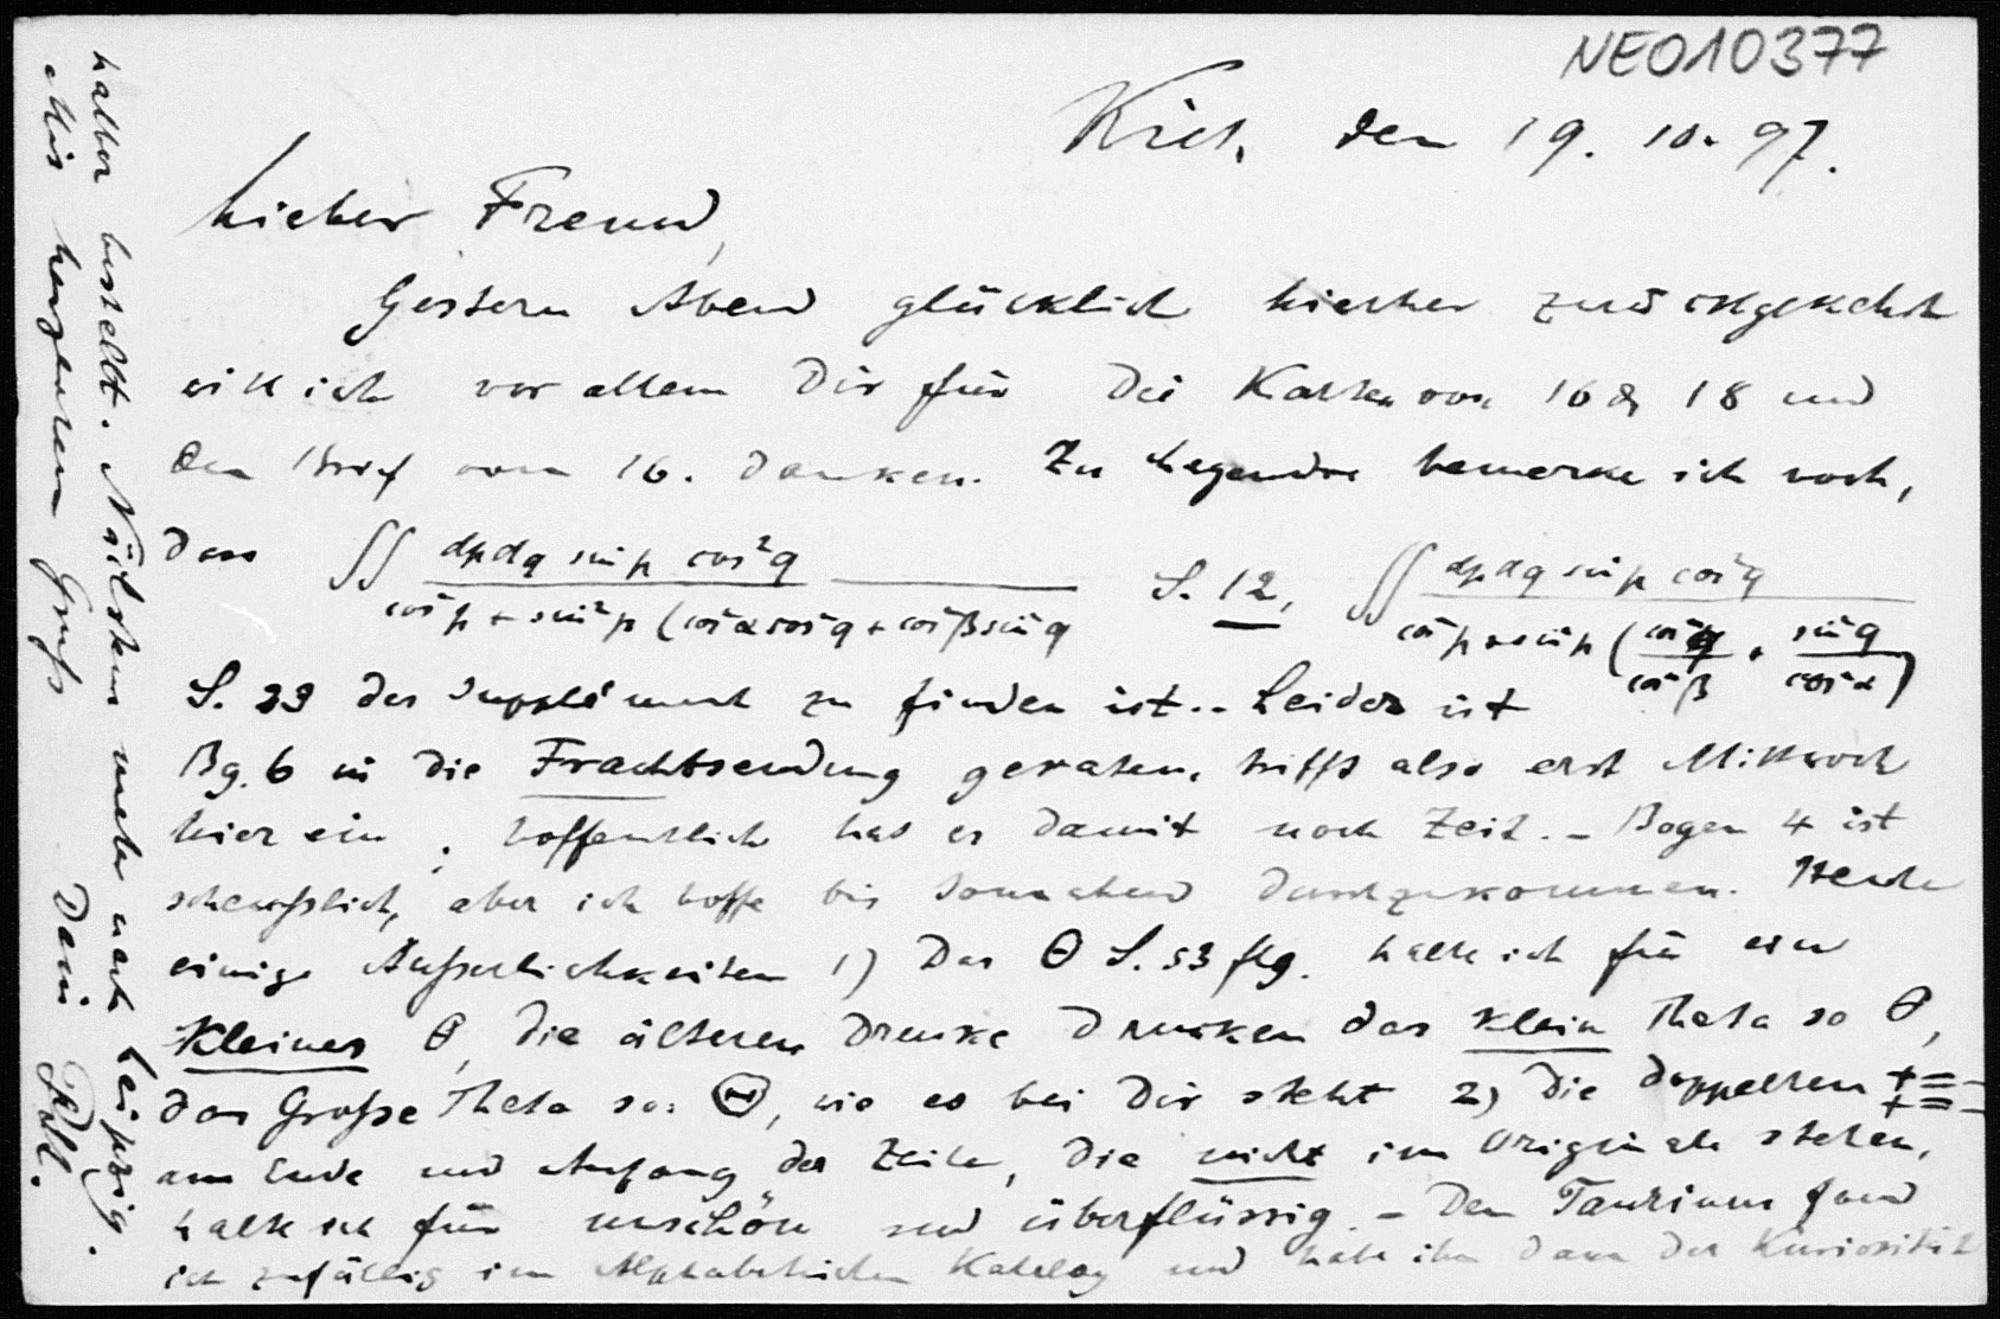 NEO10377
Kiel, den 19. 10. 97.
Lieber Freund,
Gestern Abend glücklich hierher zurückgekehrt
will ich vor allem Dir für die Karten von 16 & 18 und
den Brief vom 16. danken. Zu Legendre bemerke ich noch,
dass ∫∫ dp dq sin p cos²q / cos²p + sin²p (cos²α cos²q + cos²β sin²q S. 12, ∫∫ dp dq sin p cos²q / cos²p + sin²p (cos²q / cos²β + sin²q / cos²α)
S. 33 des Supplément zu finden ist.. Leider ist
Bg. 6 in die Frachtsendung geraten, trifft also erst Mittwoch
hier ein; hoffentlich hat es damit noch Zeit. – Bogen 4 ist
scheusslich, aber ich hoffe bis Sonnabend durchzukommen. Heute
einige Äußerlichkeiten 1) Das θ S. 53 flg. halte ich für ein
Kleines θ, die älteren Drucke drucken das klein Theta so θ,
das Große Theta so: Θ, wie es bei Dir steht 2) Die doppelten + = – + = –
am Ende und Anfang der Zeile, die nicht im Originale stehen,
halte ich für unschön und überflüssig. – Den Taurinus fand
ich zufällig im Alphabetischen Katalog und habe ihn dann der Kuriosität
halber bestellt. Nächstens mehr nach Leipzig.
Mit herzlichem Gruß Dein Pl.